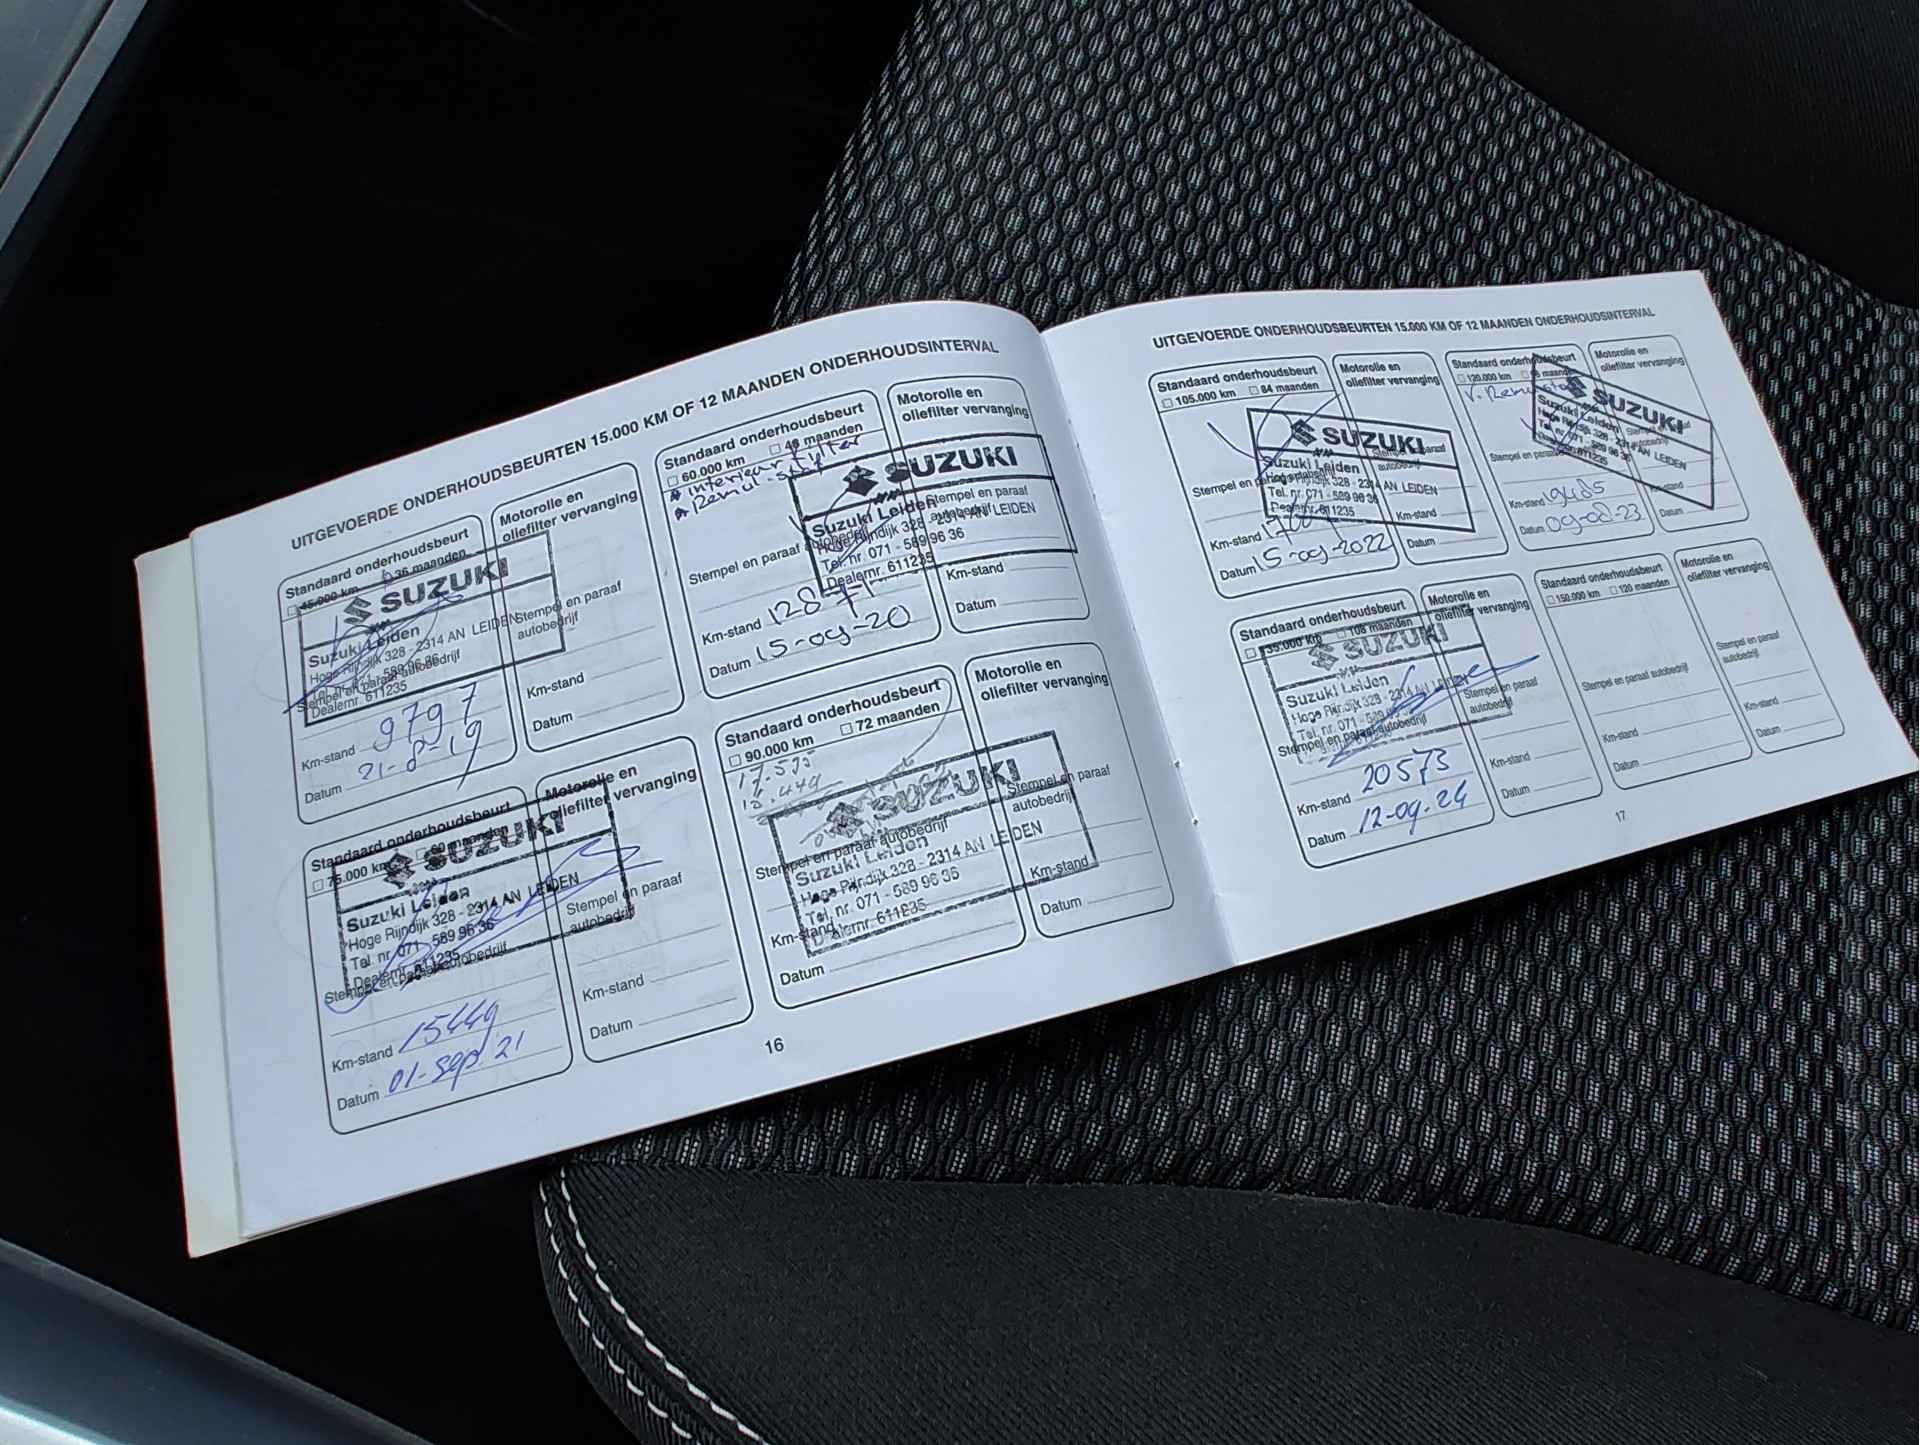 UITGEVOERDE ONDERHOUDSBEURTEN 15.000 KM OF 12 MAANDEN ONDERHOUDSINTERVAL
Standaard onderhoudsbeurt
45.000 km 36 maanden
SUZUKI
Suzuki Leiden
Hoge Rijndijk 328 - 2314 AN LEIDEN
Tel. nr. 071 - 589 96 36
Dealernr. 611235
Stempel en paraaf autobedrijf
Km-stand 9797
Datum 21-8-19
Motorolie en
oliefilter vervanging
Stempel en paraaf
autobedrijf
Km-stand
Datum
Standaard onderhoudsbeurt
60.000 km 48 maanden
* interieur filter
SUZUKI
Suzuki Leiden
Hoge Rijndijk 328 - 2314 AN LEIDEN
Tel. nr. 071 - 589 96 36
Dealernr. 611235
Stempel en paraaf autobedrijf
Km-stand 12871
Datum 15-09-20
Motorolie en
oliefilter vervanging
Stempel en paraaf
autobedrijf
Km-stand
Datum
Standaard onderhoudsbeurt
75.000 km 60 maanden
SUZUKI
Suzuki Leiden
Hoge Rijndijk 328 - 2314 AN LEIDEN
Tel. nr. 071 - 589 96 36
Dealernr. 611235
Stempel en paraaf autobedrijf
Km-stand 15449
Datum 01-sep. 21
Motorolie en
oliefilter vervanging
Stempel en paraaf
autobedrijf
Km-stand
Datum
Standaard onderhoudsbeurt
90.000 km 72 maanden
15.449
SUZUKI
Stempel en paraaf autobedrijf
Suzuki Leiden
Hoge Rijndijk 328 - 2314 AN LEIDEN
Tel. nr. 071 - 589 96 36
Dealernr. 611235
Km-stand
Datum
Motorolie en
oliefilter vervanging
Stempel en paraaf
autobedrijf
Km-stand
Datum
16
UITGEVOERDE ONDERHOUDSBEURTEN 15.000 KM OF 12 MAANDEN ONDERHOUDSINTERVAL
Standaard onderhoudsbeurt
105.000 km 84 maanden
SUZUKI
Suzuki Leiden
Hoge Rijndijk 328 - 2314 AN LEIDEN
Tel. nr. 071 - 589 96 36
Dealernr. 611235
Stempel en paraaf autobedrijf
Km-stand
Datum 15-09-2022
Motorolie en
oliefilter vervanging
Stempel en paraaf
autobedrijf
Km-stand
Datum
Standaard onderhoudsbeurt
120.000 km 96 maanden
SUZUKI
Suzuki Leiden
Hoge Rijndijk 328 - 2314 AN LEIDEN
Tel. nr. 071 - 589 96 36
Dealernr. 611235
Stempel en paraaf autobedrijf
Km-stand 19485
Datum 09-08-23
Motorolie en
oliefilter vervanging
Stempel en paraaf
autobedrijf
Km-stand
Datum
Standaard onderhoudsbeurt
135.000 km 108 maanden
SUZUKI
Suzuki Leiden
Hoge Rijndijk 328 - 2314 AN LEIDEN
Tel. nr. 071 - 589 96 36
Stempel en paraaf autobedrijf
Km-stand 20573
Datum 12-09-24
Motorolie en
oliefilter vervanging
Stempel en paraaf
autobedrijf
Km-stand
Datum
Standaard onderhoudsbeurt
150.000 km 120 maanden
Stempel en paraaf autobedrijf
Km-stand
Datum
Motorolie en
oliefilter vervanging
Stempel en paraaf
autobedrijf
Km-stand
Datum
17